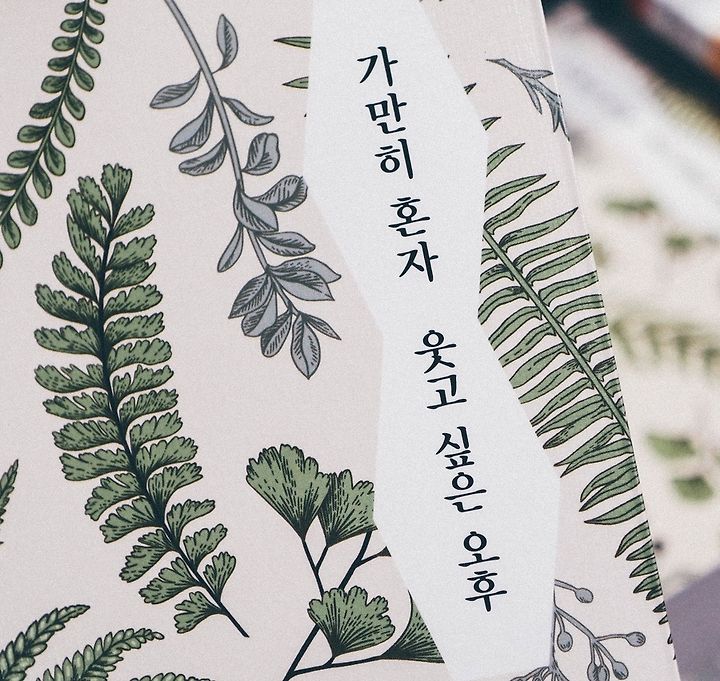 가만히 혼자 웃고 싶은 오후